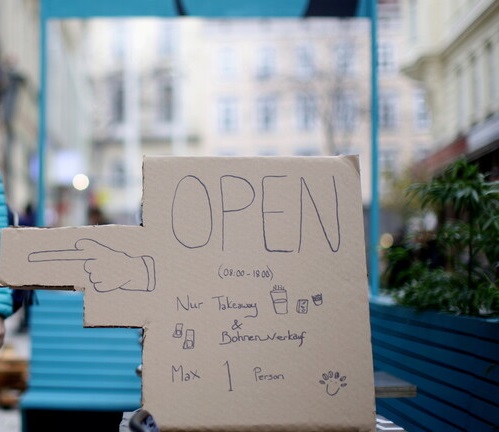 OPEN
(08:00-18:00)
Nur Takeaway
&
Bohnenverkauf
Max 1 Person